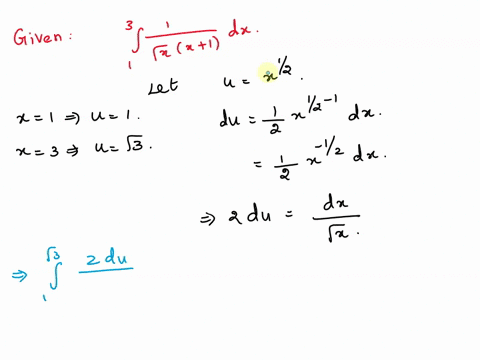 Given: ∫₁³ 1/(√x (x+1)) dx.
Let u = x^{1/2}.
x = 1 ⇒ u = 1. du = 1/2 x^{1/2 - 1} dx.
x = 3 ⇒ u = √3. = 1/2 x^{-1/2} dx.
⇒ 2 du = dx/√x.
⇒ ∫₁^{√3} 2 du